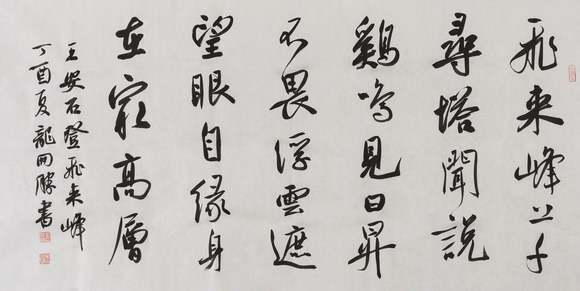 飛来峰上千
尋塔聞說
鷄鳴見日昇
不畏浮雲遮
望眼自緣身
在最高層
王安石登飛来峰
丁酉夏龍開勝書